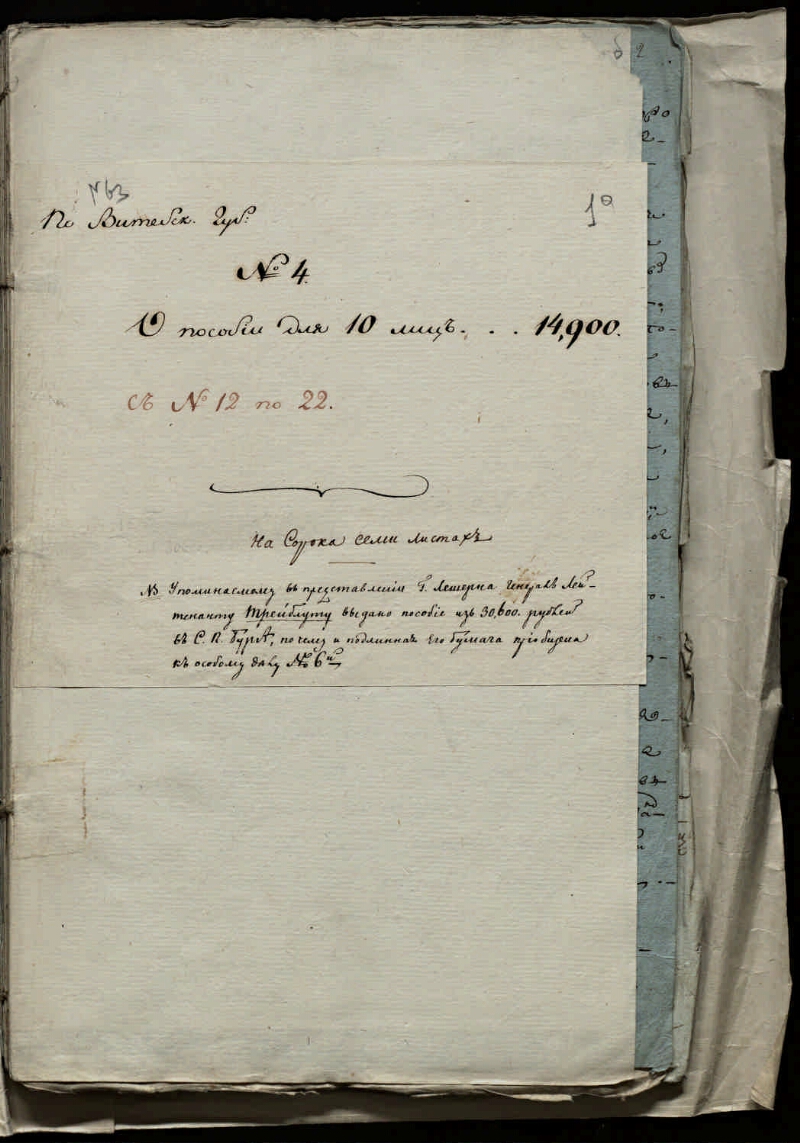 2
№3
1
По Витебск. Губ.
№ 4
О пособіи для 10 лицъ. . . 14,900.
съ № 12 по 22.
На Сорока семи листахъ
NB Упоминаемому въ представленіи Г. Лешерна Генералъ Лей-
тенанту Трейблуту выдано пособіе изъ 30,600. рублей
въ С. П. Бургѣ, по чему и подлинная его бумага
къ особому дѣлу № 6